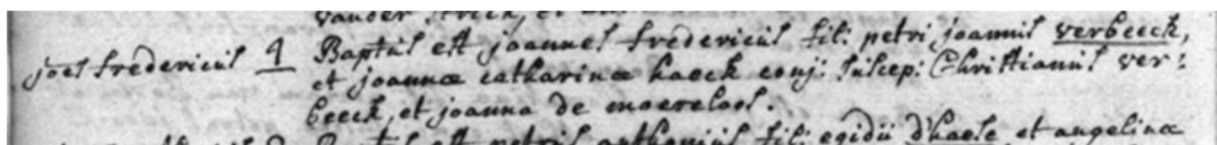 vander
joes fredericus 9 Baptūs est joannes fredericus fili: petri joannis verbeeck,
et joannæ catharinæ haeck conj: suscep: Christianus ver:
beeck, et joanna de maereloos.
est petrus anthonius fili: egidii d'haese et angelinæ